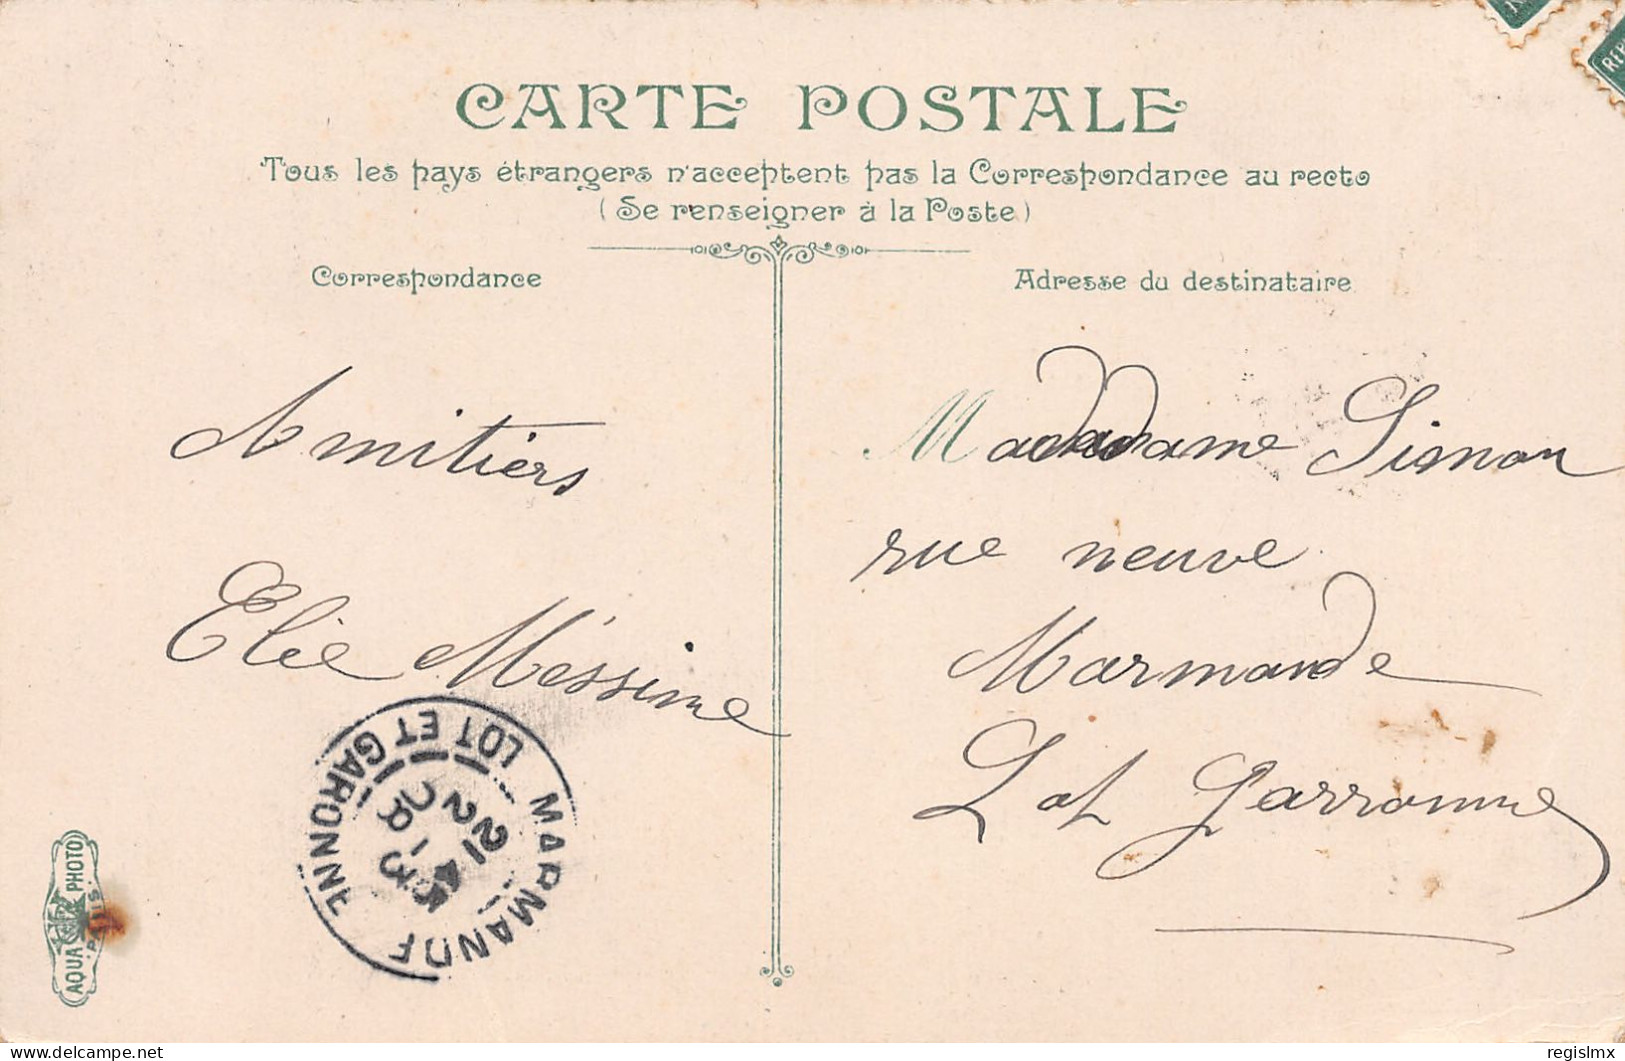 CARTE POSTALE
Tous les pays étrangers n'acceptent pas la Correspondance au recto
(Se renseigner à la Poste)
Correspondance
Adresse du destinataire
Amitiers
Elie Méssime
Madame Simon
rue neuve
Marmande
Lot Garronne
MARMANDE
LOT ET GARONNE
AQUA PHOTO
PARIS
REP
regislmx